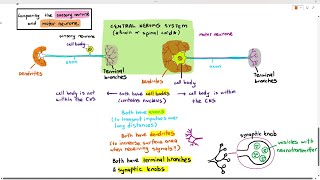 Comparing the sensory neurone
and motor neurone.
CENTRAL NERVOUS SYSTEM
(brain or spinal cord)
sensory neurone
cell body
axon
dendrites
Terminal
branches
motor neurone
axon
Dendrites
cell body
Terminal
branches
cell body is not
within the CNS
Both have cell bodies
(contains nucleus)
cell body is within
the CNS
Both have axons
(to transmit impulses over
long distances)
Both have dendrites
(to increase surface area
when receiving signals)
Both have terminal branches
& synaptic knobs
synaptic knob
vesicles with
neurotransmitter